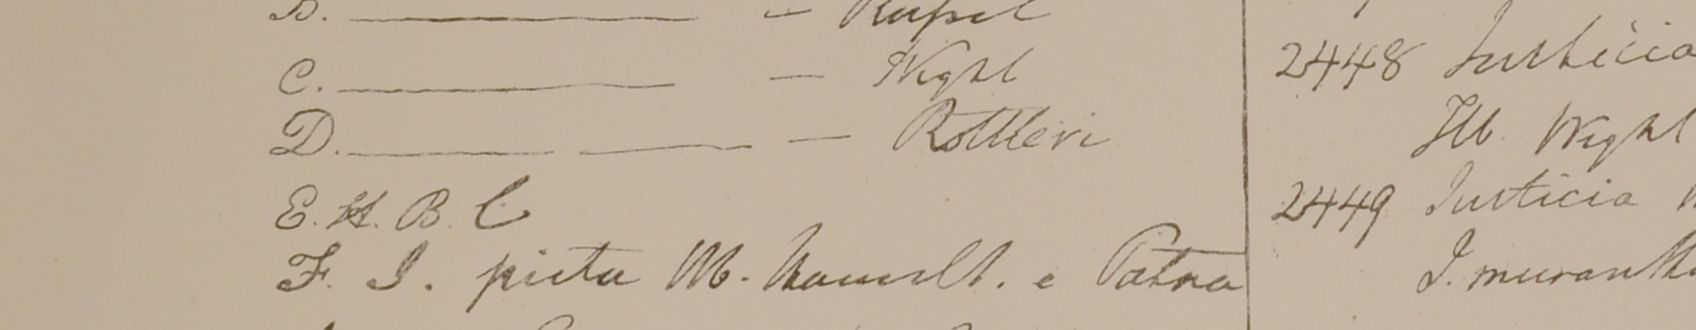 B. ——— — Russel
C. ——— — Wight
D. ——— — Rottleri
E. H. B. C
F. J. picta Hb. Hamilt. e Patna
2448 Justicia
Hb. Wight
2449 Justicia
J. micranth